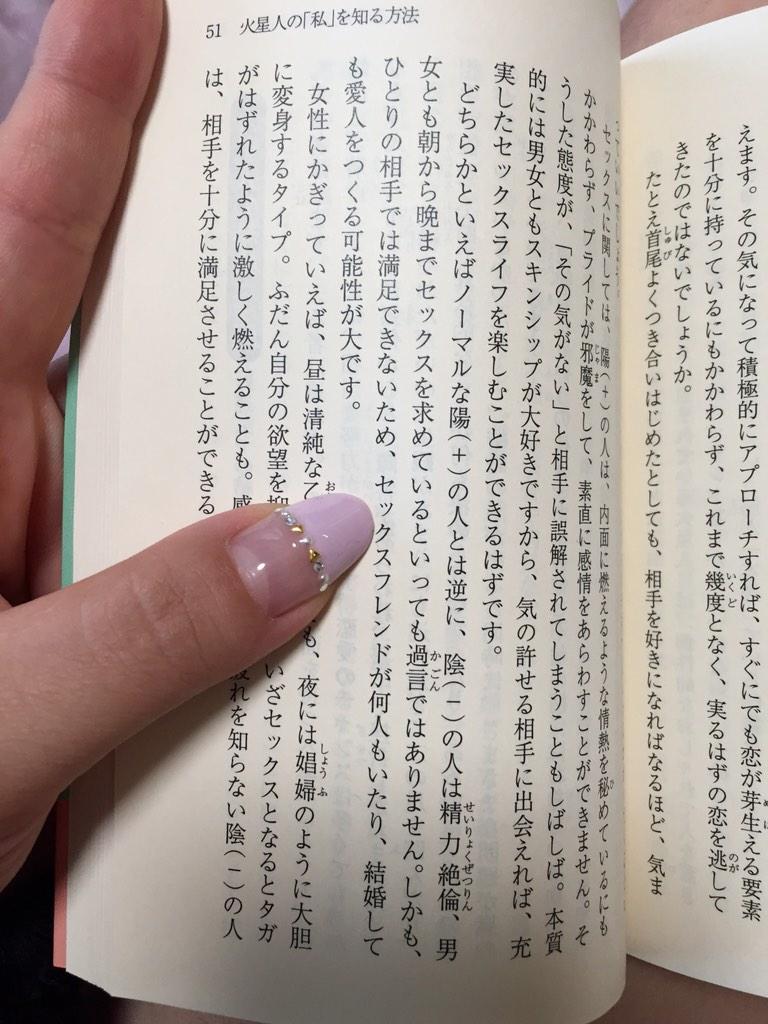 えます。その気になって積極的にアプローチすれば、すぐにでも恋が芽生える要素
を十分に持っているにもかかわらず、これまで幾度となく、実るはずの恋を逃して
きたのではないでしょうか。
たとえ首尾よくつき合いはじめたとしても、相手を好きになればなるほど、気ま
51 火星人の「私」を知る方法
セックスに関しては、陽(+)の人は、内面に燃えるような情熱を秘めているにも
かかわらず、プライドが邪魔をして、素直に感情をあらわすことができません。そ
うした態度が、「その気がない」と相手に誤解されてしまうこともしばしば。本質
的には男女ともスキンシップが大好きですから、気の許せる相手に出会えれば、充
実したセックスライフを楽しむことができるはずです。
どちらかといえばノーマルな陽(+)の人とは逆に、陰(−)の人は精力絶倫、男
女とも朝から晩までセックスを求めているといっても過言ではありません。しかも、
ひとりの相手では満足できないため、セックスフレンドが何人もいたり、結婚して
も愛人をつくる可能性が大です。
女性にかぎっていえば、昼は清純な も、夜には娼婦のように大胆
に変身するタイプ。ふだん自分の欲望を いざセックスとなるとタガ
がはずれたように激しく燃えることも。 疲れを知らない陰(−)の人
は、相手を十分に満足させることができる